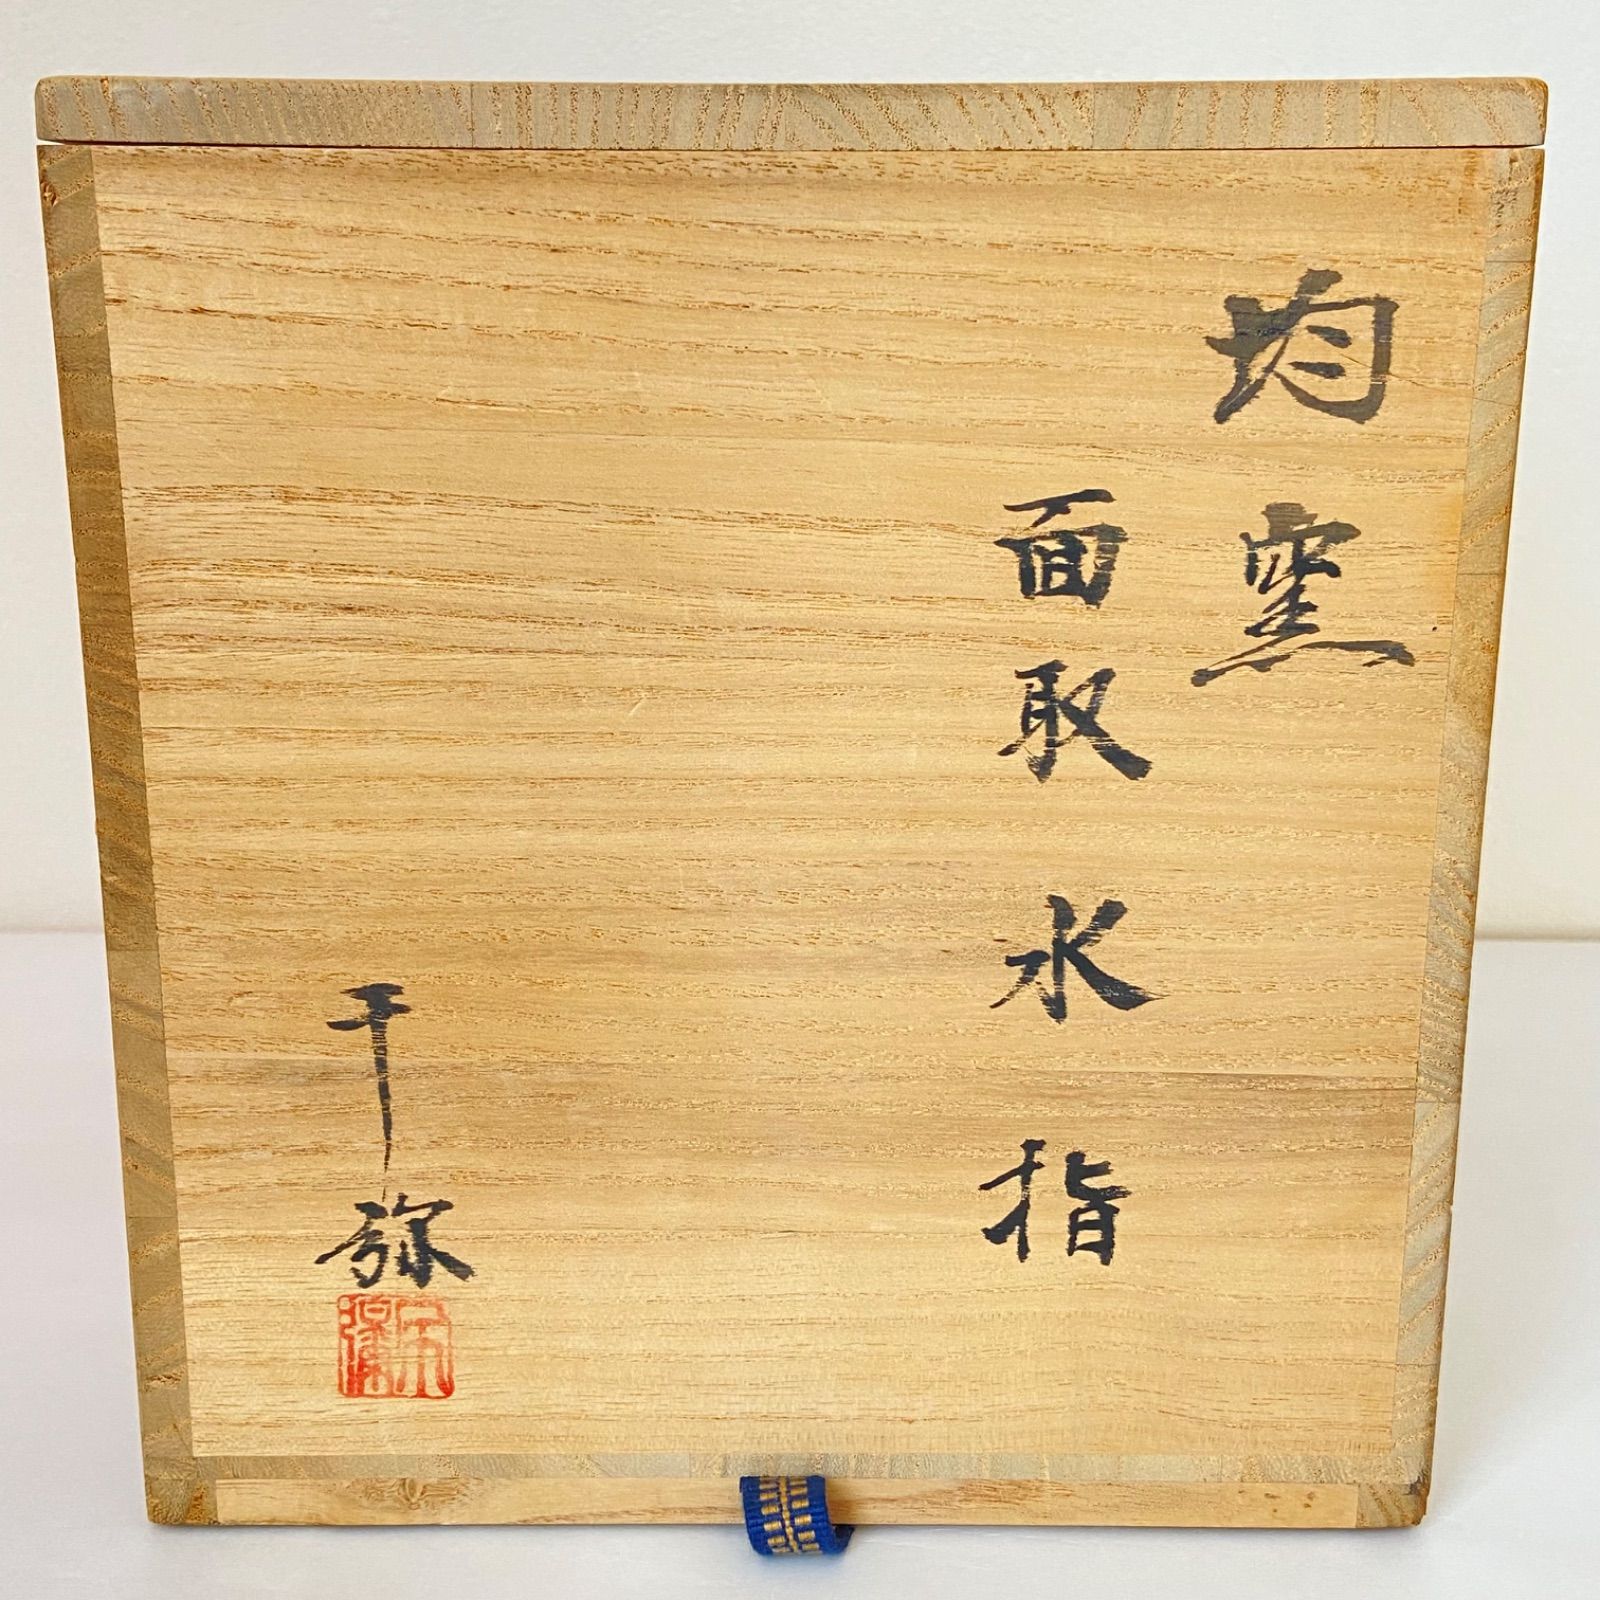 均窯
面取水指
千弥